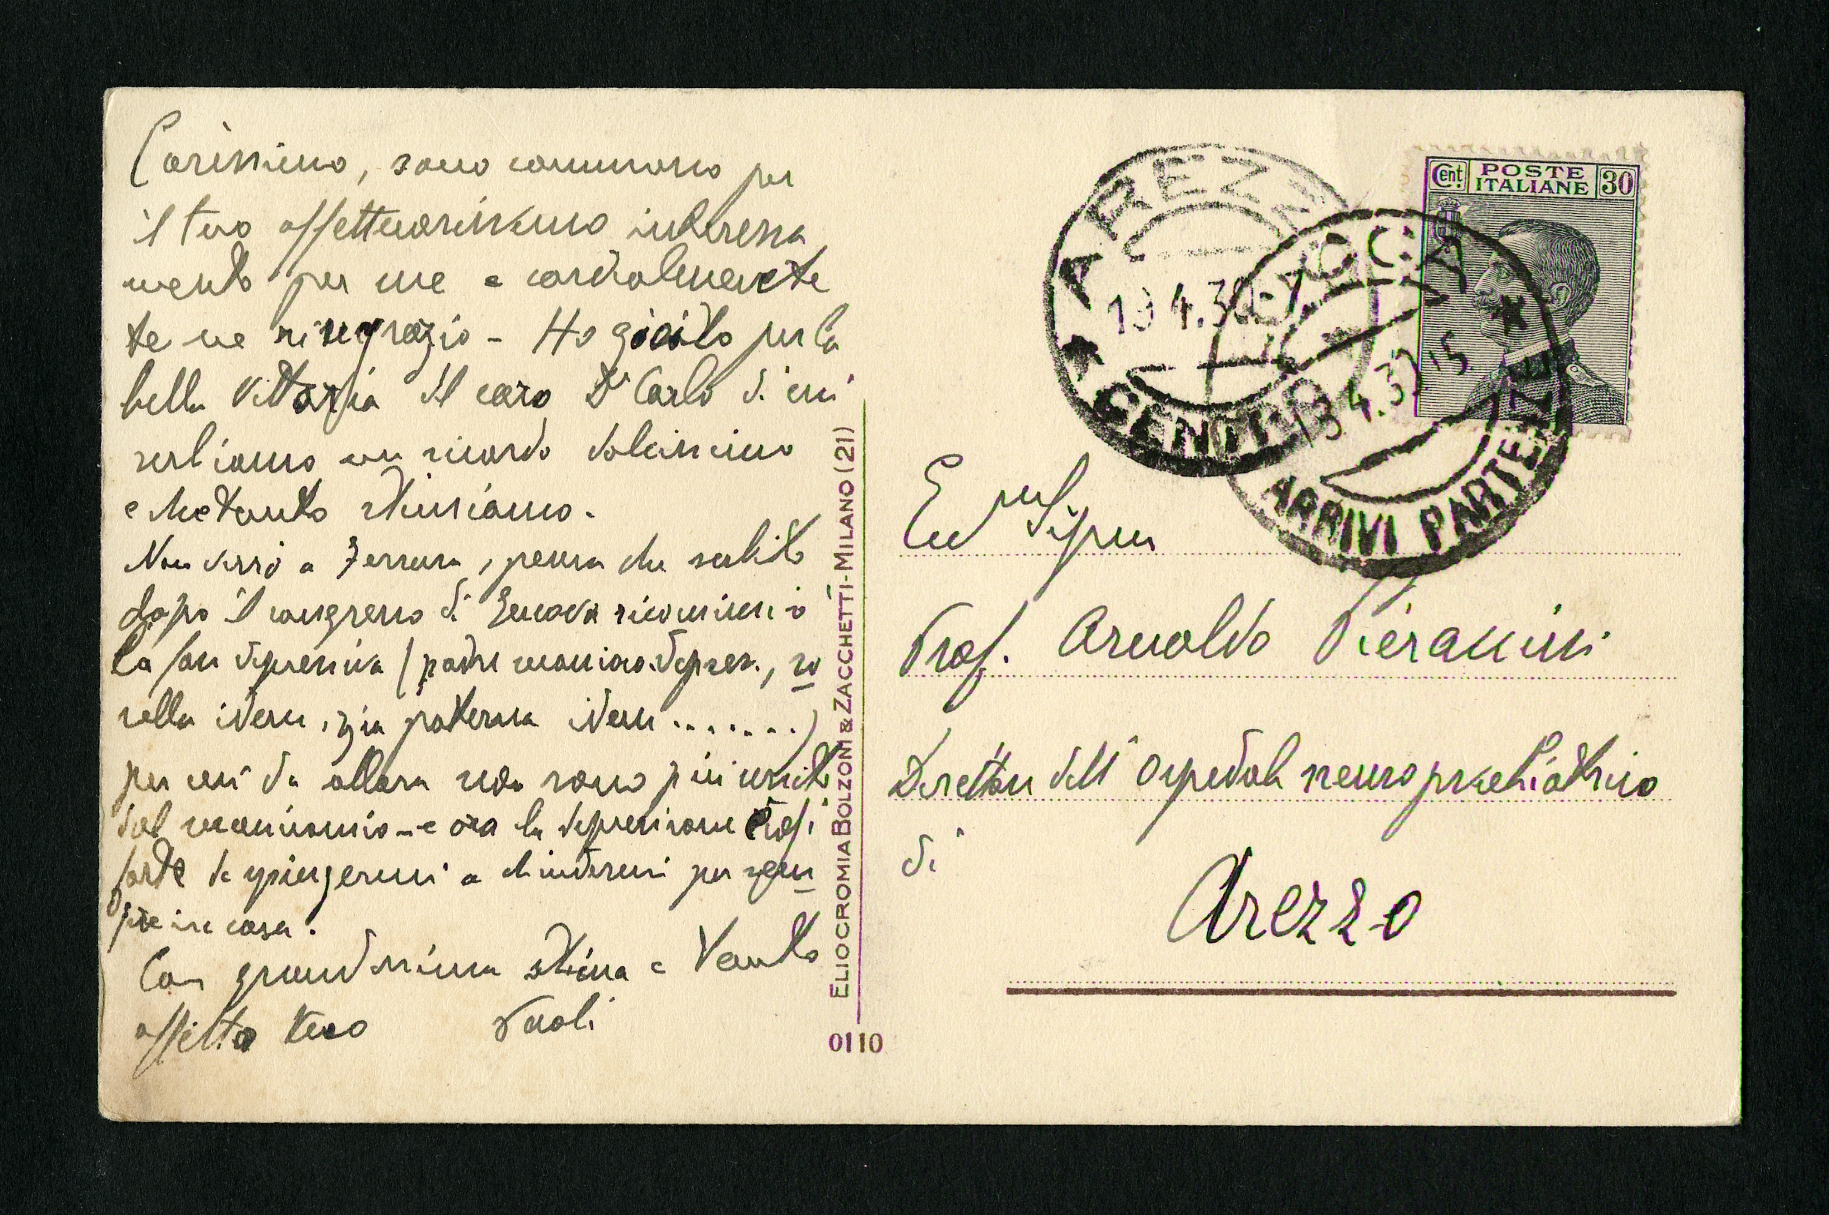 Carissimo, sono commosso per
il tuo affettuosissimo interessa
mento per me e cordialmente
te ne ringrazio - Ho gioito per la
bella vittoria del caro Dr Carlo di cui
serbiamo un ricordo dolcissimo
e che tanto stimiamo.
Non verrò a Ferrara, pensa che subito
dopo il congresso di Genova ricominciò
la fase depressiva (padre maniaco depres., so
rella idem, zia paterna idem .......)
per cui da allora non sono più uscito
dal manicomio - e ora la depressione è così
forte da spingermi a chiudermi per sem
pre in casa.
Con grandissima stima e tanto
affetto tuo Paoli
ELIOCROMIA BOLZONI & ZACCHETTI - MILANO (21)
0110
Cent POSTE ITALIANE 30
AREZZO
CENTRO
19 4.3
ARRIVI PARTENZE
4.32 15
Prof. Arnaldo Pieraccini
Direttore dell'Ospedale neuropsichiatrico
di
Arezzo